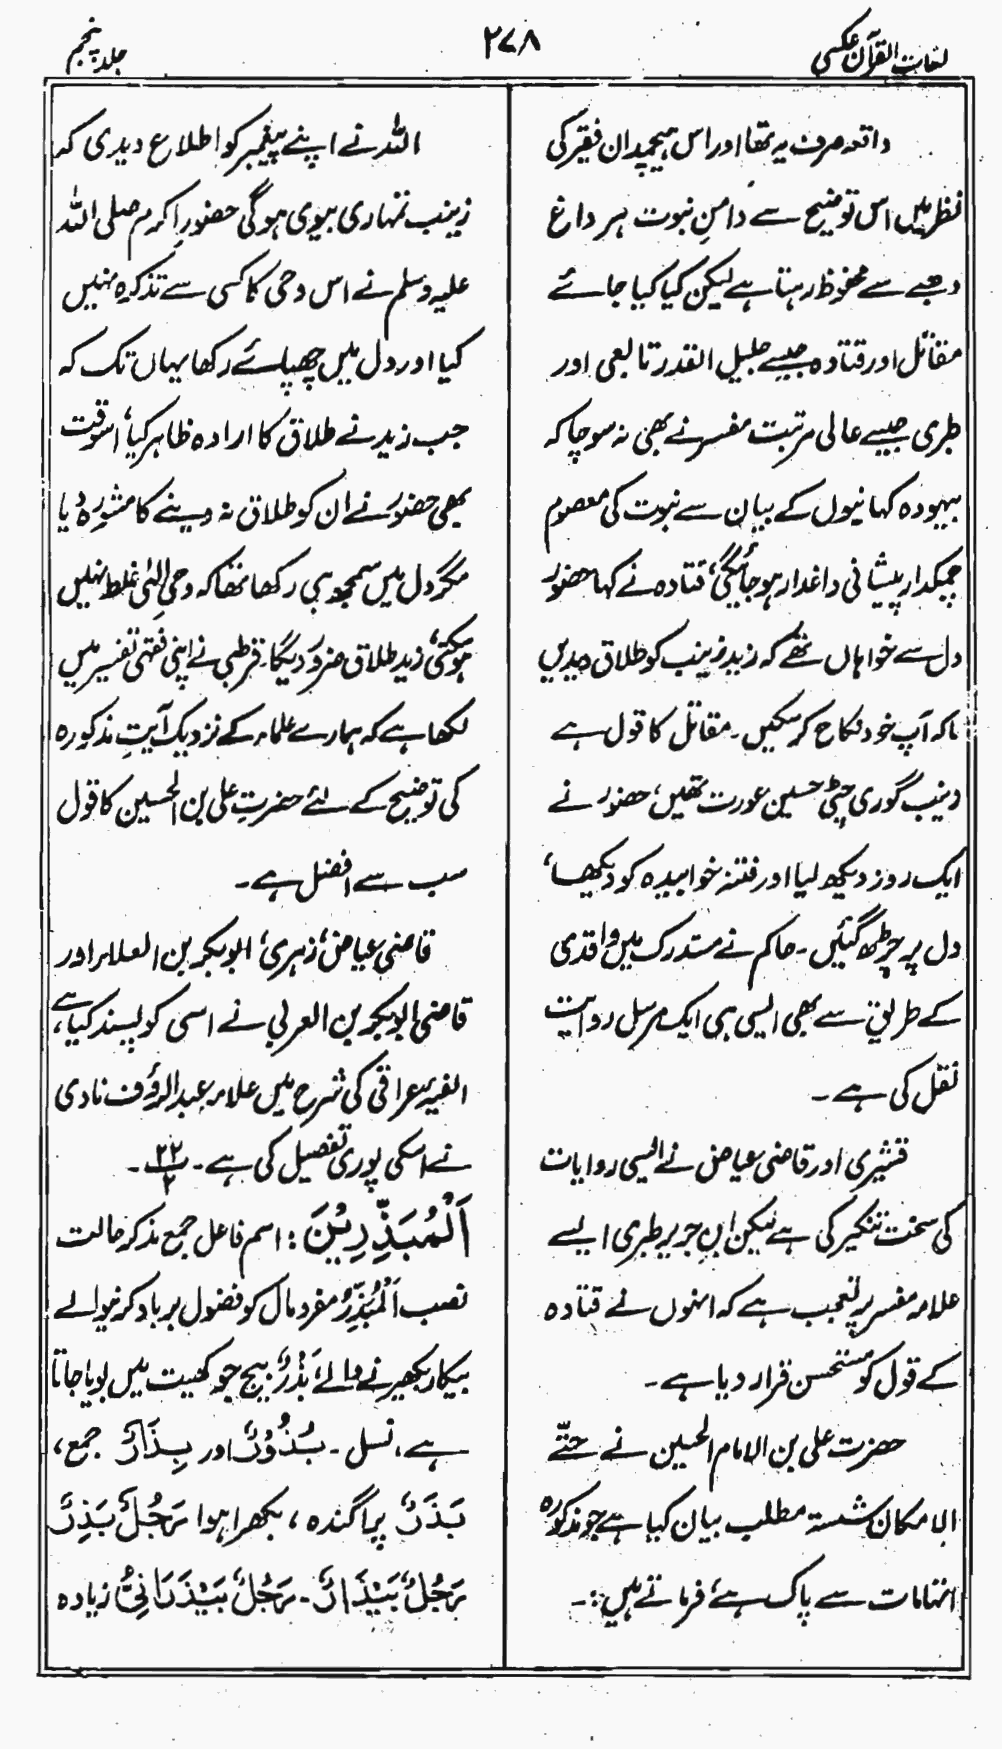 لغات القرآن عکسی
۲۷۸
جلد پنجم
واقعہ صرف یہ تھا اور اس ہیچمدان فقیر کی
نظر میں اس توضیح سے دامنِ نبوت ہر داغ
دھبے سے محفوظ رہتا ہے لیکن کیا کیا جائے
مقاتل اور قتادہ جیسے جلیل القدر تابعی اور
طبری جیسے عالی مرتبت مفسر نے بھی نہ سوچا کہ
بیہودہ کہانیوں کے بیان سے نبوت کی معصوم
چمکدار پیشانی داغدار ہوجائیگی، قتادہ نے کہا حضور
دل سے خواہاں تھے کہ زید زینب کو طلاق دیدیں
تاکہ آپ خود نکاح کر سکیں۔ مقاتل کا قول ہے
زینب گوری چٹی حسین عورت تھیں، حضور نے
ایک روز دیکھ لیا اور فتنہ خوابیدہ کو دیکھا،
دل پر چڑھ گئیں۔ حاکم نے مستدرک میں واقدی
کے طریق سے بھی ایسی ہی ایک مرسل روایت
نقل کی ہے۔
قشیری اور قاضی عیاض نے ایسی روایات
کی سخت تنکیر کی ہے لیکن ابن جریر طبری ایسے
علامہ مفسر پر تعجب ہے کہ انہوں نے قتادہ
کے قول کو مستحسن قرار دیا ہے۔
حضرت علی بن الامام الحسین نے حتے
الامکان شستہ مطلب بیان کیا ہے جو مذکورہ
اتہامات سے پاک ہے، فرماتے ہیں:۔
اللہ نے اپنے پیغمبر کو اطلاع دیدی کہ
زینب تمہاری بیوی ہوگی حضور اکرم صلی اللہ
علیہ وسلم نے اس وحی کا کسی سے تذکرہ نہیں
کیا اور دل میں چھپائے رکھا یہاں تک کہ
جب زید نے طلاق کا ارادہ ظاہر کیا، اسوقت
بھی حضور نے ان کو طلاق نہ دینے کا مشورہ دیا
مگر دل میں سمجھ ہی رکھا تھا کہ وحی الٰہی غلط نہیں
ہوسکتی، زید طلاق ضرور دیگا۔ قرطبی نے اپنی فقہی تفسیر میں
لکھا ہے کہ ہمارے علماء کے نزدیک آیتِ مذکورہ
کی توضیح کے لئے حضرت علی بن الحسین کا قول
سب سے افضل ہے۔
قاضی عیاض، زہری، ابوبکر بن العلاء اور
قاضی ابوبکر بن العربی نے اسی کو پسند کیا ہے،
الفیہ عراقی کی شرح میں علامہ عبدالرؤف نادی
نے اسکی پوری تفصیل کی ہے۔ ۲۲/۲۔
اَلْمُبَذِّرِیْنَ: اسم فاعل جمع مذکر حالت
نصب اَلْمُبَذِّرُ مفرد مال کو فضول برباد کرنیوالے
بیکار بکھیرنے والے، بَذْرٌ بیج جو کھیت میں بویا جاتا
ہے، نسل۔ بُذُوْرٌ اور بِذَارٌ جمع،
بَذَرٌ پراگندہ، بکھرا ہوا رَجُلٌ بَذِرٌ
رَجُلٌ بَیْذَارٌ۔ رَجُلٌ بَیْذَرَانِیٌّ زیادہ